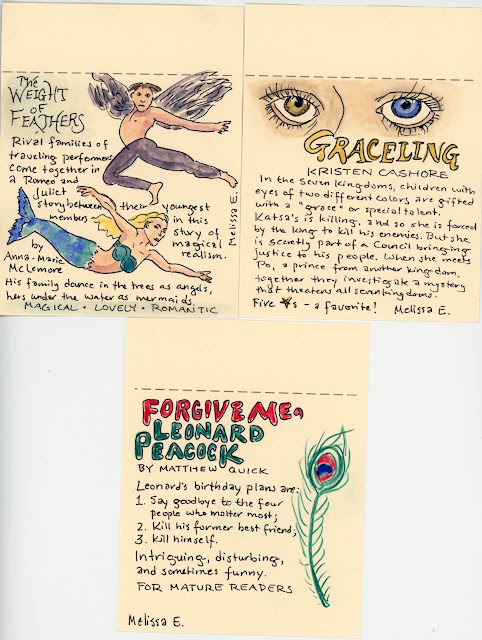 The
WEIGHT
OF
FEATHERS
Rival families of
traveling performers
come together in
a Romeo and
Juliet
story between their youngest
members in this
story of
magical
realism.
by
Anna-Marie
McLemore
His family dance in the trees as angels,
hers under the water as mermaids.
MAGICAL · LOVELY · ROMANTIC
Melissa E.
GRACELING
KRISTEN CASHORE
In the seven kingdoms, children with
eyes of two different colors are gifted
with a "grace" or special talent.
Katsa's is killing, and so she is forced
by the king to kill his enemies. But she
is secretly part of a Council bringing
justice to his people. When she meets
Po, a prince from another kingdom,
together they investigate a mystery
that threatens all seven kingdoms.
Five ★s - a favorite! Melissa E.
FORGIVE ME,
LEONARD
PEACOCK
BY MATTHEW QUICK
Leonard's birthday plans are:
1. Say goodbye to the four
people who matter most;
2. Kill his former best friend;
3. Kill himself.
Intriguing, disturbing,
and sometimes funny.
FOR MATURE READERS
Melissa E.